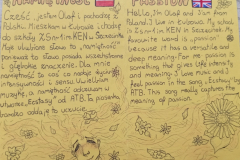 Cześć, jestem Olaf i pochodzę z
Polski. Mieszkam w Cukrowie i chodzę
do szkoły ZSnr1im.KEN w Szczecinku
Moje ulubione słowo to „namiętność"
ponieważ to słowo posiada wszechstronne
i głębokie znaczenie. Dla mnie
namiętność to coś co nadaje życiu
intensywności i sensu. Uwielbiam
muzykę, a namiętność odczuwam w
utworze „Ecstasy" od ATB. Ta piosenka
bardzo oddaje to uczucie.
Hello, I'm Olaf and I'm from
Poland. I live in
ZSnr1im.KEN in Szczecinek. My
favourite word is „passion"
because it has a versatile and
deep meaning. For me passion is
something that gives life intensity
and meaning. I love music and I
feel passion in the song „Ecstasy"
ATB. This song really captures the
meaning of passion.